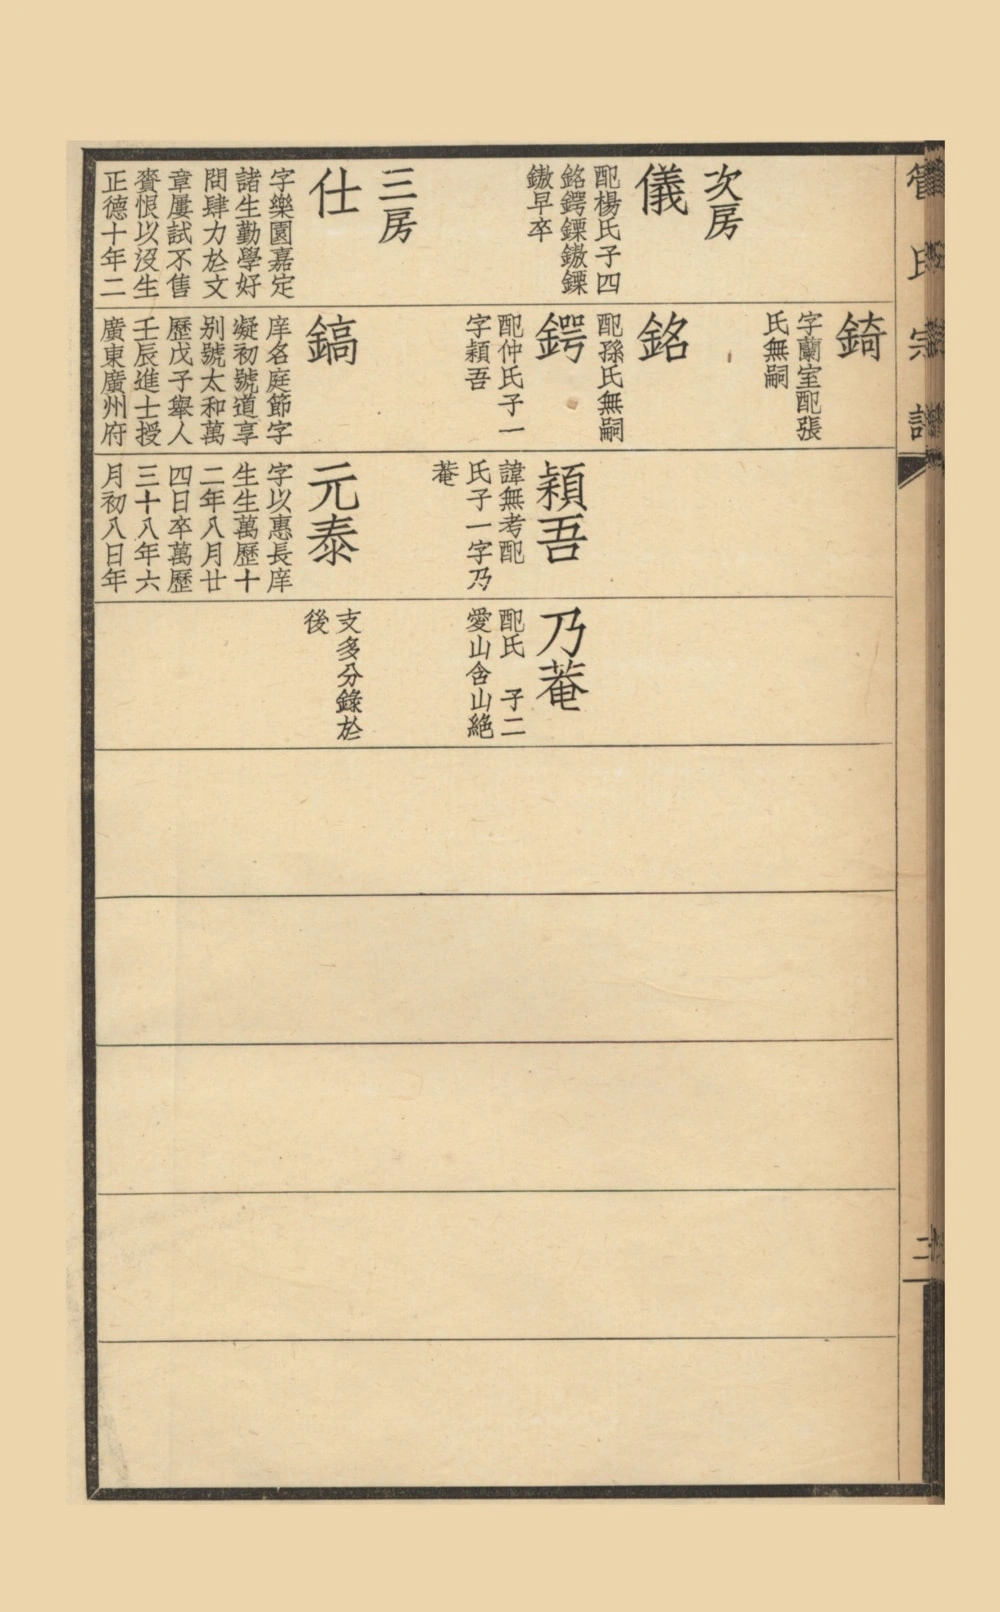 管氏宗譜
次房
儀
配楊氏子四
銘鍔鏢鏾鏢
鏾早卒
三房
仕
字樂園嘉定
諸生勤學好
問肆力於文
章屢試不售
賫恨以沒生
正德十年二
錡
字蘭室配張
氏無嗣
銘
配孫氏無嗣
鍔
配仲氏子一
字穎吾
鎬
庠名庭節字
凝初號道享
別號太和萬
歷戊子舉人
壬辰進士授
廣東廣州府
穎吾
諱無考配
氏子一字乃
菴
元泰
字以惠長庠
生生萬歷十
二年八月廿
四日卒萬歷
三十八年六
月初八日年
乃菴
配氏 子二
愛山含山絕
支多分錄於
後